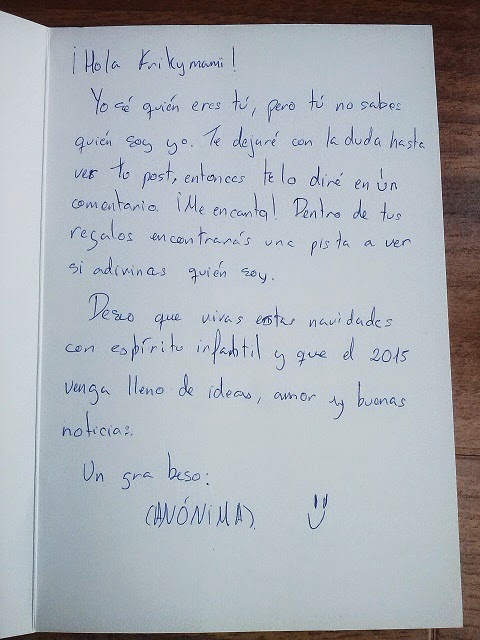 ¡Hola Krikymami!
Yo sé quién eres tú, pero tú no sabes
quién soy yo. Te dejaré con la duda hasta
ver tu post, entonces te lo diré en un
comentario. ¡Me encanta! Dentro de tus
regalos encontrarás una pista a ver
si adivinas quién soy.
Deseo que vivas estas navidades
con espíritu infantil y que el 2015
venga lleno de ideas, amor y buenas
noticias.
Un gra beso:
(ANÓNIMA).